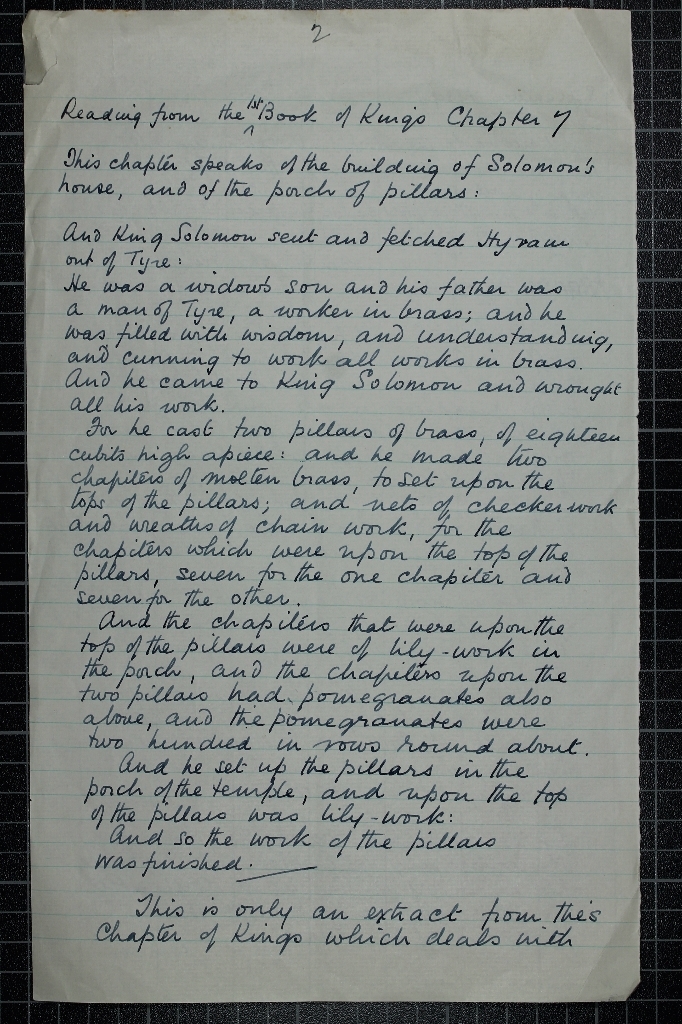 2
Reading from the 1st Book of Kings Chapter 7
This chapter speaks of the building of Solomon's
house, and of the porch of pillars:
And King Solomon sent and fetched Hyram
out of Tyre:
He was a widow's son and his father was
a man of Tyre, a worker in brass; and he
was filled with wisdom, and understanding,
and cunning to work all works in brass.
And he came to King Solomon and wrought
all his work.
For he cast two pillars of brass, of eighteen
cubits high apiece: and he made two
chapiters of molten brass, to set upon the
tops of the pillars; and nets of checker work
and wreaths of chain work, for the
chapiters which were upon the top of the
pillars, seven for the one chapiter and
seven for the other.
And the chapiters that were upon the
top of the pillars were of lily-work in
the porch, and the chapiters upon the
two pillars had pomegranates also
above, and the pomegranates were
two hundred in rows round about.
And he set up the pillars in the
porch of the temple, and upon the top
of the pillars was lily-work:
And so the work of the pillars
was finished.
This is only an extract from this
Chapter of Kings which deals with